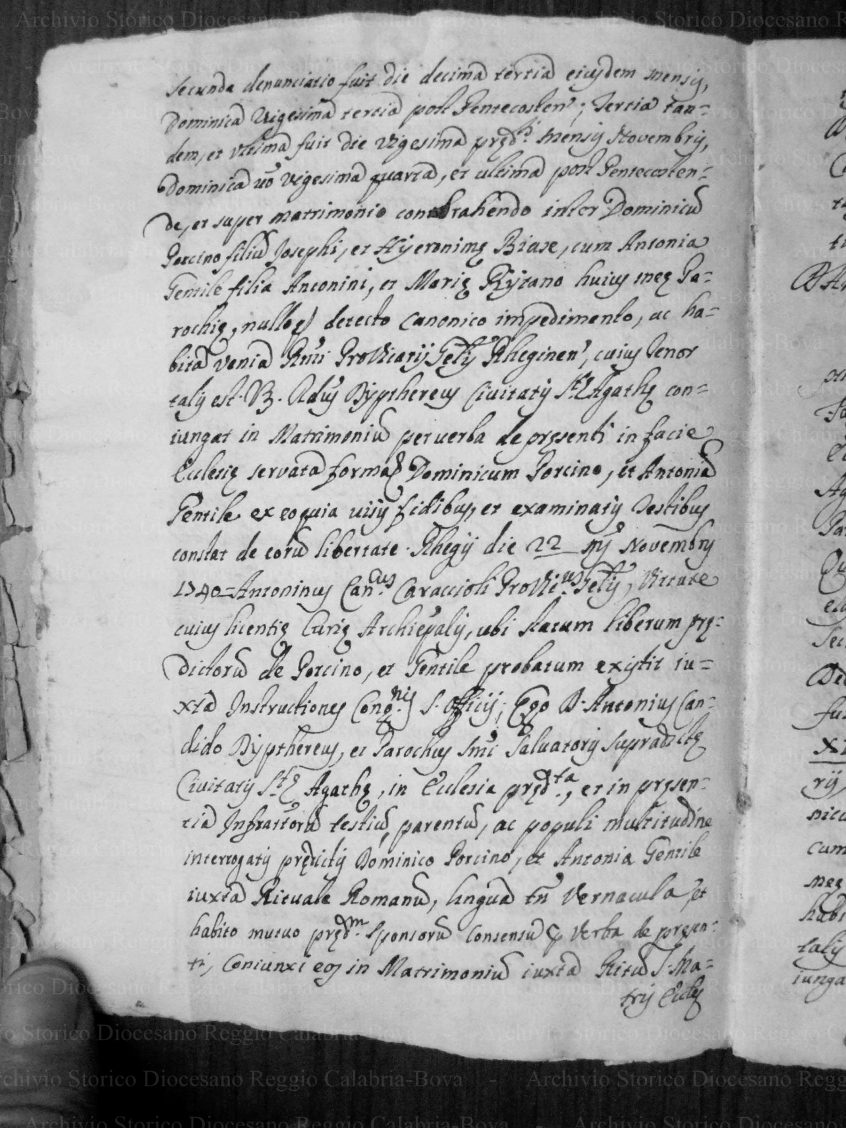 Archivio Storico Diocesano Reggio Calabria-Bova - Archivio Storico Diocesano
secunda denunciatio fuit die decima tertia eiusdem mensis,
Dominica vigesima tertia post Pentecosten; Tertia tan=
dem, et ultima fuit die vigesima prędi. mensis Novembris,
Dominica vo vigesima quarta, et ultima post Pentecosten=
de, et super matrimonio contrahendo inter Dominicu
Porcino filiu Josephi, et Hyeronimę Biase, cum Antonia
Gentile filia Antonini, et Marię Rijtano huius meę Pa=
rochię, nulloq detecto canonico impedimento, ac ha=
bita venia Rmi ProVicarij Gēlis Rheginen, cuius tenor
talis est. V3. Adus Dyphthereus Civitatis Stę Agathę con=
iungat in Matrimoniu per verba de pręsenti in facie
Ecclesię servata forma Dominicum Porcino, et Antonia
Gentile ex eo quia visis fidibus, et examinatis testibus
constat de eoru libertate. Rhegij die 22 mis Novembris
1740=Antoninus Can.cus Caraccioli ProVic.us Gelis, Virtute
cuius licentię Curię Archiepalis, ubi statum liberum prę=
dictoru de Porcino, et Gentile probatum existit iu=
xta Instructiones Cong.nis S. Officij; Ego D. Antonius Can=
dido Dyphthereus, et Parochus Smi Salvatoris supradictę
Civitatis Stę Agathę, in Ecclesia pręd.ta, et in pręsen=
tia Infrattoru testiu, parentu, ac populi multitudine
interrogatis prędictis Dominico Porcino, et Antonia Gentile
iuxta Rituale Romanu, lingua tn Vernacula, et
habito mutuo pręd.m sponsoru consensu p verba de pręsen=
ti, Coniunxi eos in Matrimoniu iuxta Ritu S. Ma=
tris Eccles